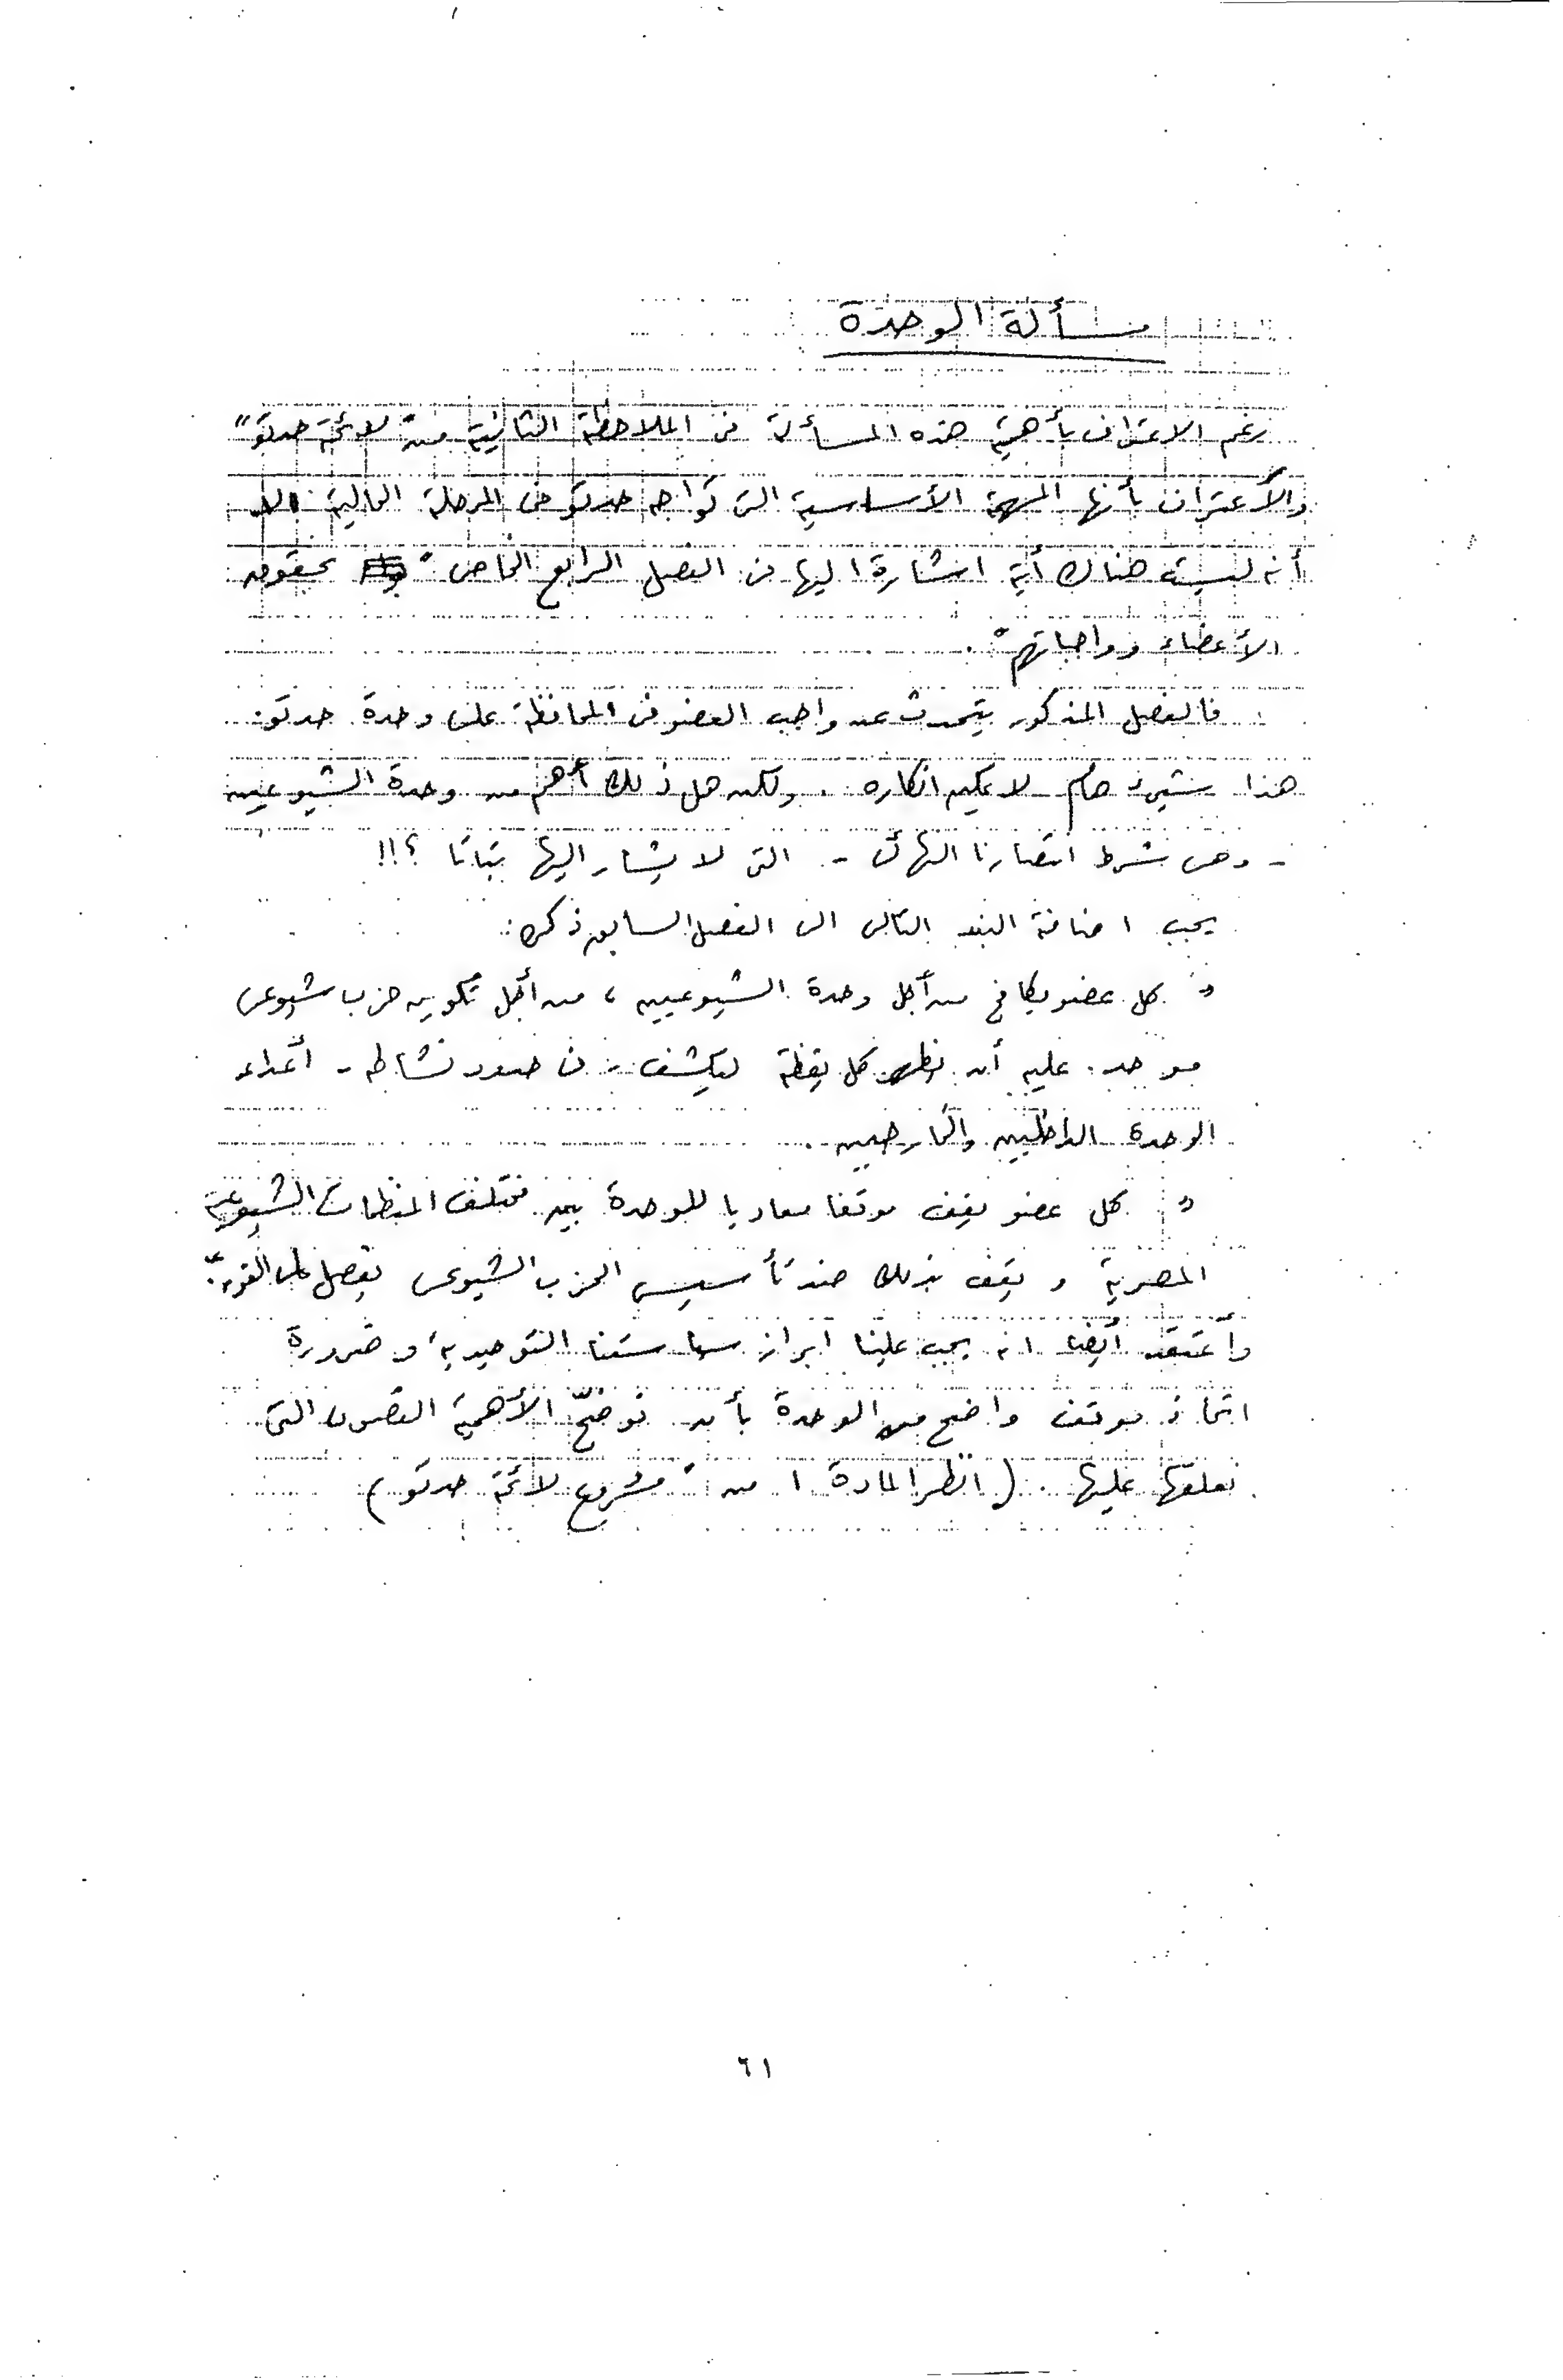 مسألة الوحدة
رغم الاعتراف بأهمية هذه المسألة فى الملاحظة الثانية من " لائحة حدتو "
والأعتراف بأنها المهمة الأساسية التى تواجه حدتو فى المرحلة الحالية الا
أنه ليست هناك أية اشارة اليها فى الفصل الرابع الخاص " بحقوق
الأعضاء وواجباتهم " .
فالفصل المذكور يتحدث عن واجب العضو فى المحافظة على وحدة حدتو .
هذا شىء هام لا يمكن انكاره . ولكن هل ذلك أهم من وحدة الشيوعيين
- وهى شرط انتصارنا النهائى - التى لا يشار اليها بتاتا ؟!!
يجب اضافة البند التالى الى الفصل السابق ذكره :
" كل عضو يكافح من أجل وحدة الشيوعيين ، من أجل تكوين حزب شيوعى
موحد . عليه أن يظهر كل يقظة ليكشف - فى حدود نشاطه - أعداء
الوحدة الداخليين والخارجيين .
" كل عضو يقف موقفا معاديا للوحدة بين مختلف المنظمات الشيوعية
المصرية ويقف بذلك ضد تأسيس الحزب الشيوعى يفصل على الفور "
وأعتقد أيضا انه يجب علينا ابراز سياستنا التوحيدية وضرورة
اتخاذ موقف واضح من الوحدة بأن نوضح الأهمية القصوى التى
نعلقها عليها . ( انظر المادة ١ من " مشروع لائحة حدتو )
٦١